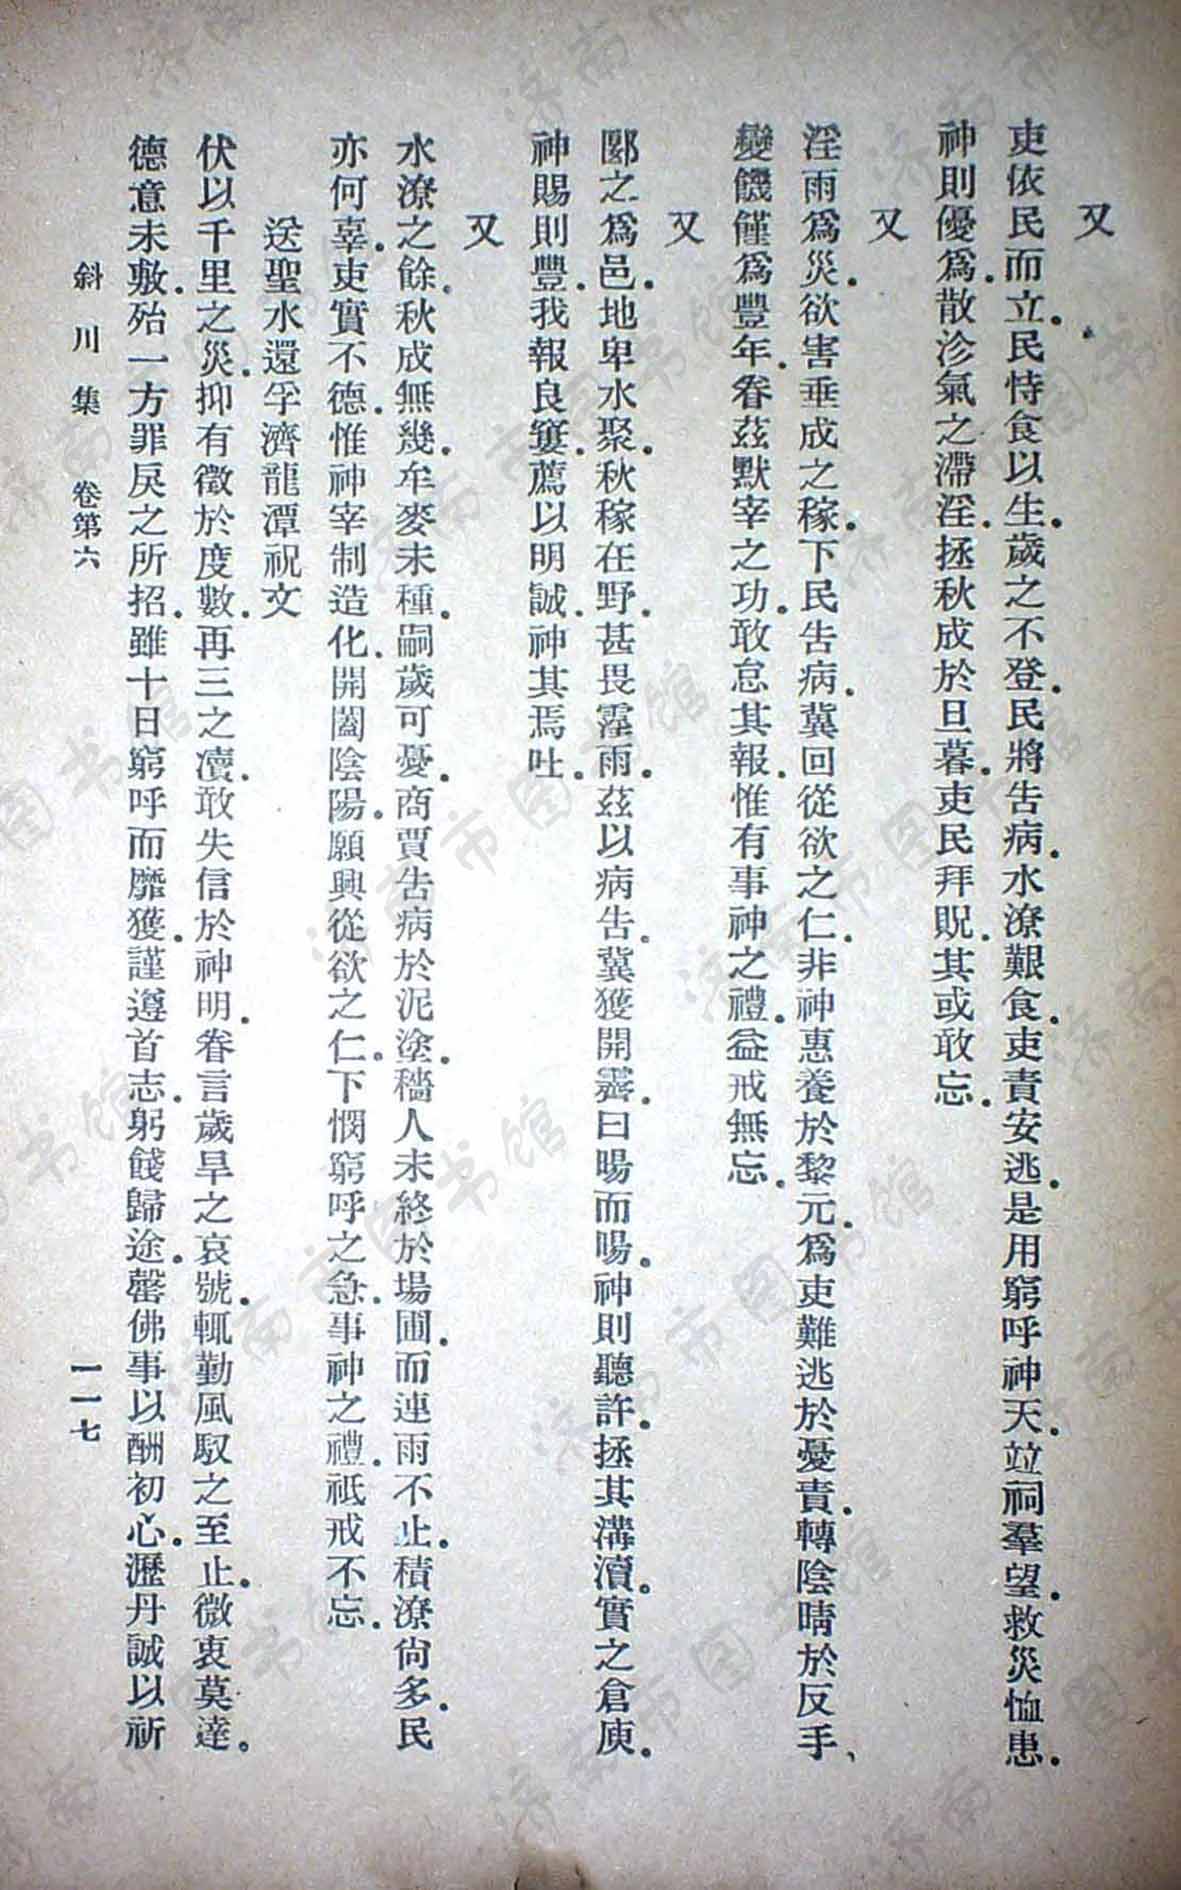 又
吏依民而立.民恃食以生.歲之不登.民將告病.水潦艱食.吏責安逃.是用窮呼神天.竝祠羣望.救災恤患.
神則優爲.散沴氣之滯淫.拯秋成於旦暮.吏民拜貺.其或敢忘.
又
淫雨爲災.欲害垂成之稼.下民告病.冀回從欲之仁.非神惠養於黎元.爲吏難逃於憂責.轉陰晴於反手、
變饑饉爲豐年.眷茲默宰之功.敢怠其報.惟有事神之禮.益戒無忘.
又
郾之爲邑.地卑水聚.秋稼在野.甚畏霪雨.茲以病告.冀獲開霽.曰暘而暘.神則聽許.拯其溝瀆.實之倉庾.
神賜則豐.我報良窶.薦以明誠.神其焉吐.
又
水潦之餘.秋成無幾.牟麥未種.嗣歲可憂.商賈告病於泥塗.穡人未終於場圃.而連雨不止.積潦尙多.民
亦何辜.吏實不德.惟神宰制造化.開闔陰陽.願興從欲之仁.下憫窮呼之急.事神之禮.祗戒不忘.
送聖水還孚濟龍潭祝文
伏以千里之災.抑有徵於度數.再三之瀆.敢失信於神明.眷言歲旱之哀號.輒勤風馭之至止.微衷莫達.
德意未敷.殆一方罪戾之所招.雖十日窮呼而靡獲.謹遵首志.躬餞歸途.罄佛事以酬初心.瀝丹誠以祈
斜川集 卷第六 一一七
济南市图书馆